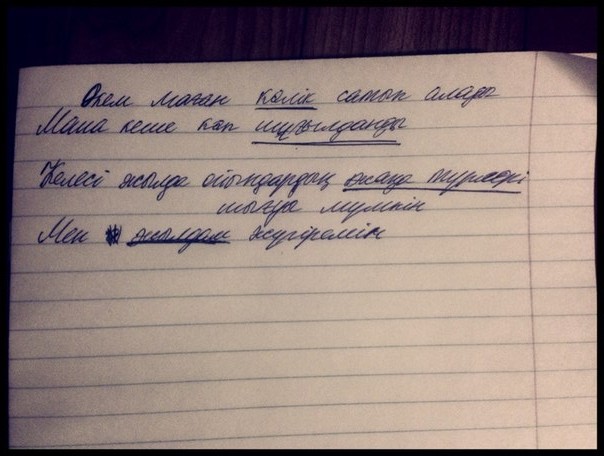 Әкем маған көлік сатып алады
Маша кеше көп шұғылданды
Келесі жылда ойындардың жаңа түрлері
шығуы мүмкін
Мен жылдам жүгіремін